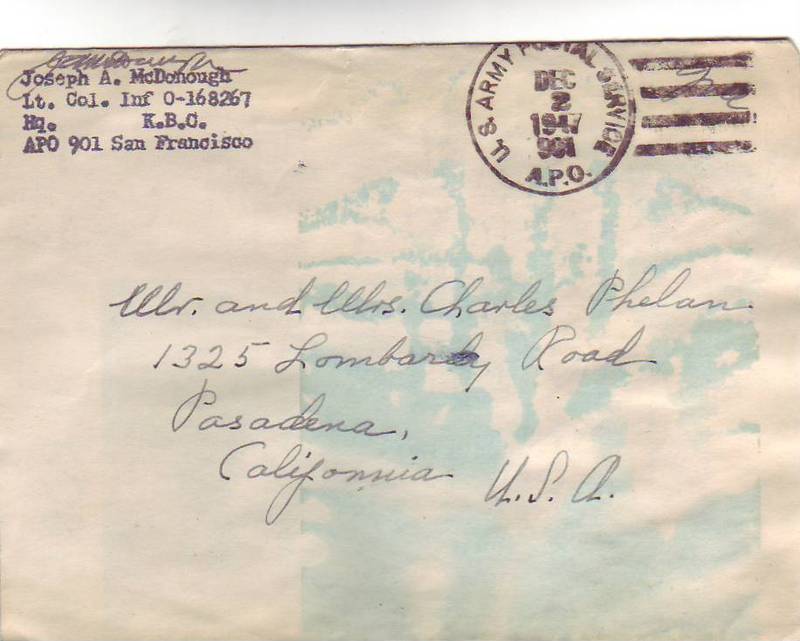 Joseph A. McDonough
Lt. Col. Inf O-168267
Hq. K.B.C.
APO 901 San Francisco
U.S. ARMY POSTAL SERVICE
DEC
2
1947
901
A.P.O.
Free
Mr. and Mrs. Charles Phelan
1325 Lombardy Road
Pasadena,
California
U.S.A.